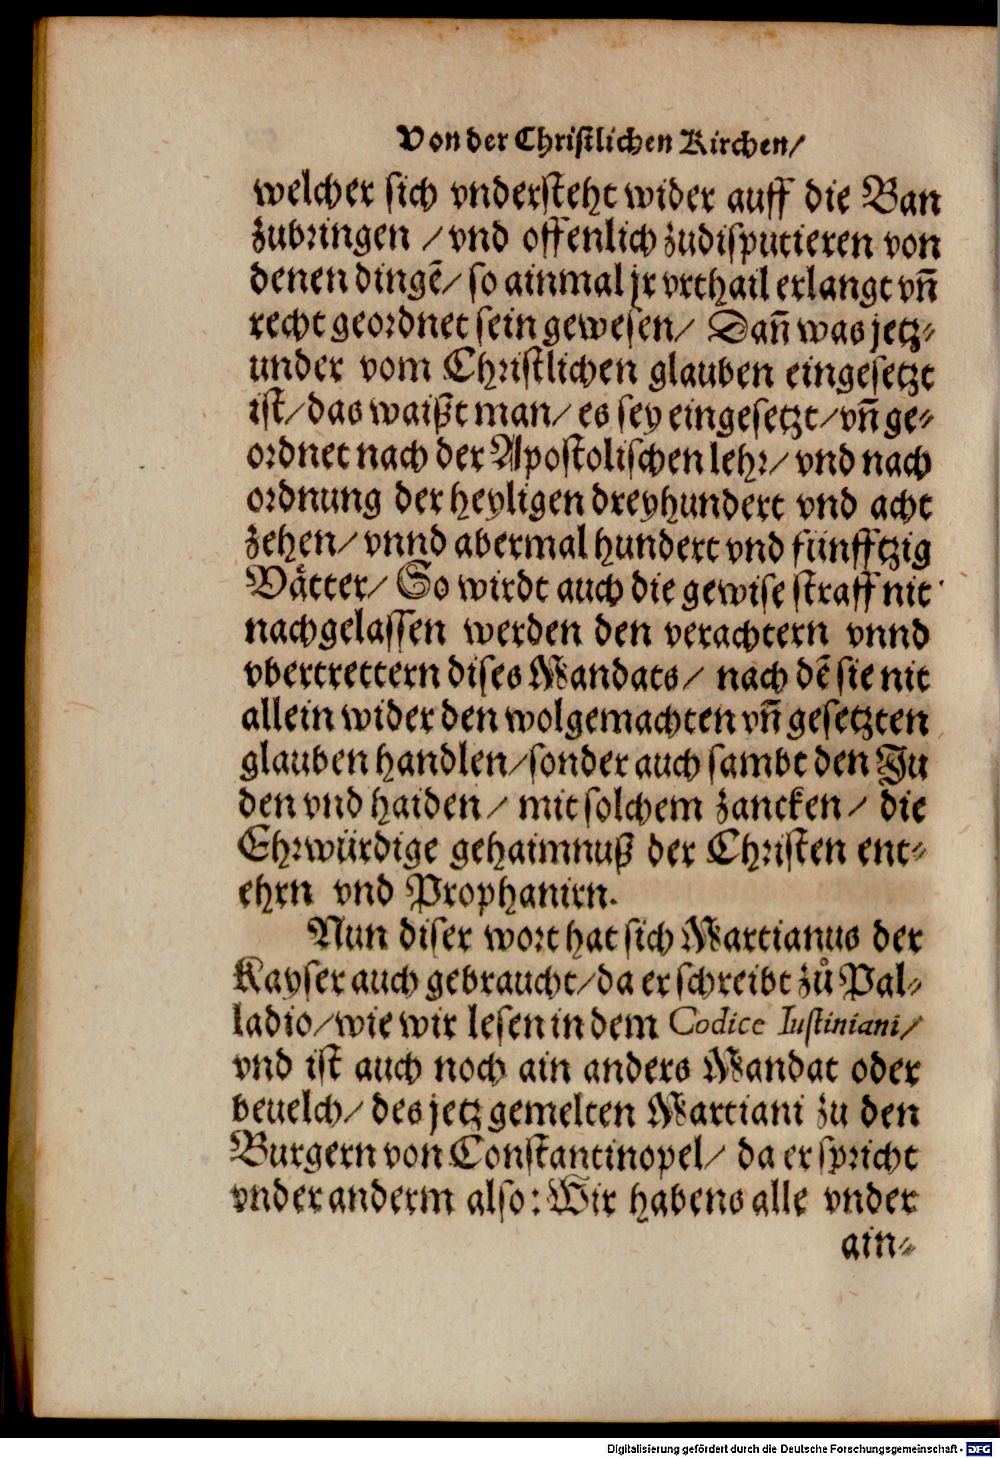 Von der Christlichen Kirchen/
welcher sich vndersteht wider auff die Ban
zubringen / vnd offenlich zudisputieren von
denen dingē/ so ainmal jr vrthail erlangt vn̄
recht geordnet sein gewesen/ Dan̄ was jetz-
under vom Christlichen glauben eingesetzt
ist/ das waißt man/ es sey eingesetzt/ vn̄ ge-
ordnet nach der Apostolischen lehr/ vnd nach
ordnung der heyligen dreyhundert vnd acht
zehen/ vnnd abermal hundert vnd fünfftzig
Vätter/ So wirdt auch die gewise straff nit
nachgelassen werden den verachtern vnnd
vbertrettern dises Mandats/ nach dē sie nit
allein wider den wolgemachten vn̄ gesetzten
glauben handlen/ sonder auch sambt den Ju
den vnd haiden/ mit solchem zancken/ die
Ehrwürdige gehaimnuß der Christen ent-
ehrn vnd Prophanirn.
Nun diser wort hat sich Martianus der
Kayser auch gebraucht/ da er schreibt zů Pal-
ladio/ wie wir lesen in dem Codice Iustiniani/
vnd ist auch noch ain anders Mandat oder
beuelch/ des jetz gemelten Martiani zu den
Burgern von Constantinopel/ da er spricht
vnder anderm also: Wir habens alle vnder
ain-
Digitalisierung gefördert durch die Deutsche Forschungsgemeinschaft - DFG